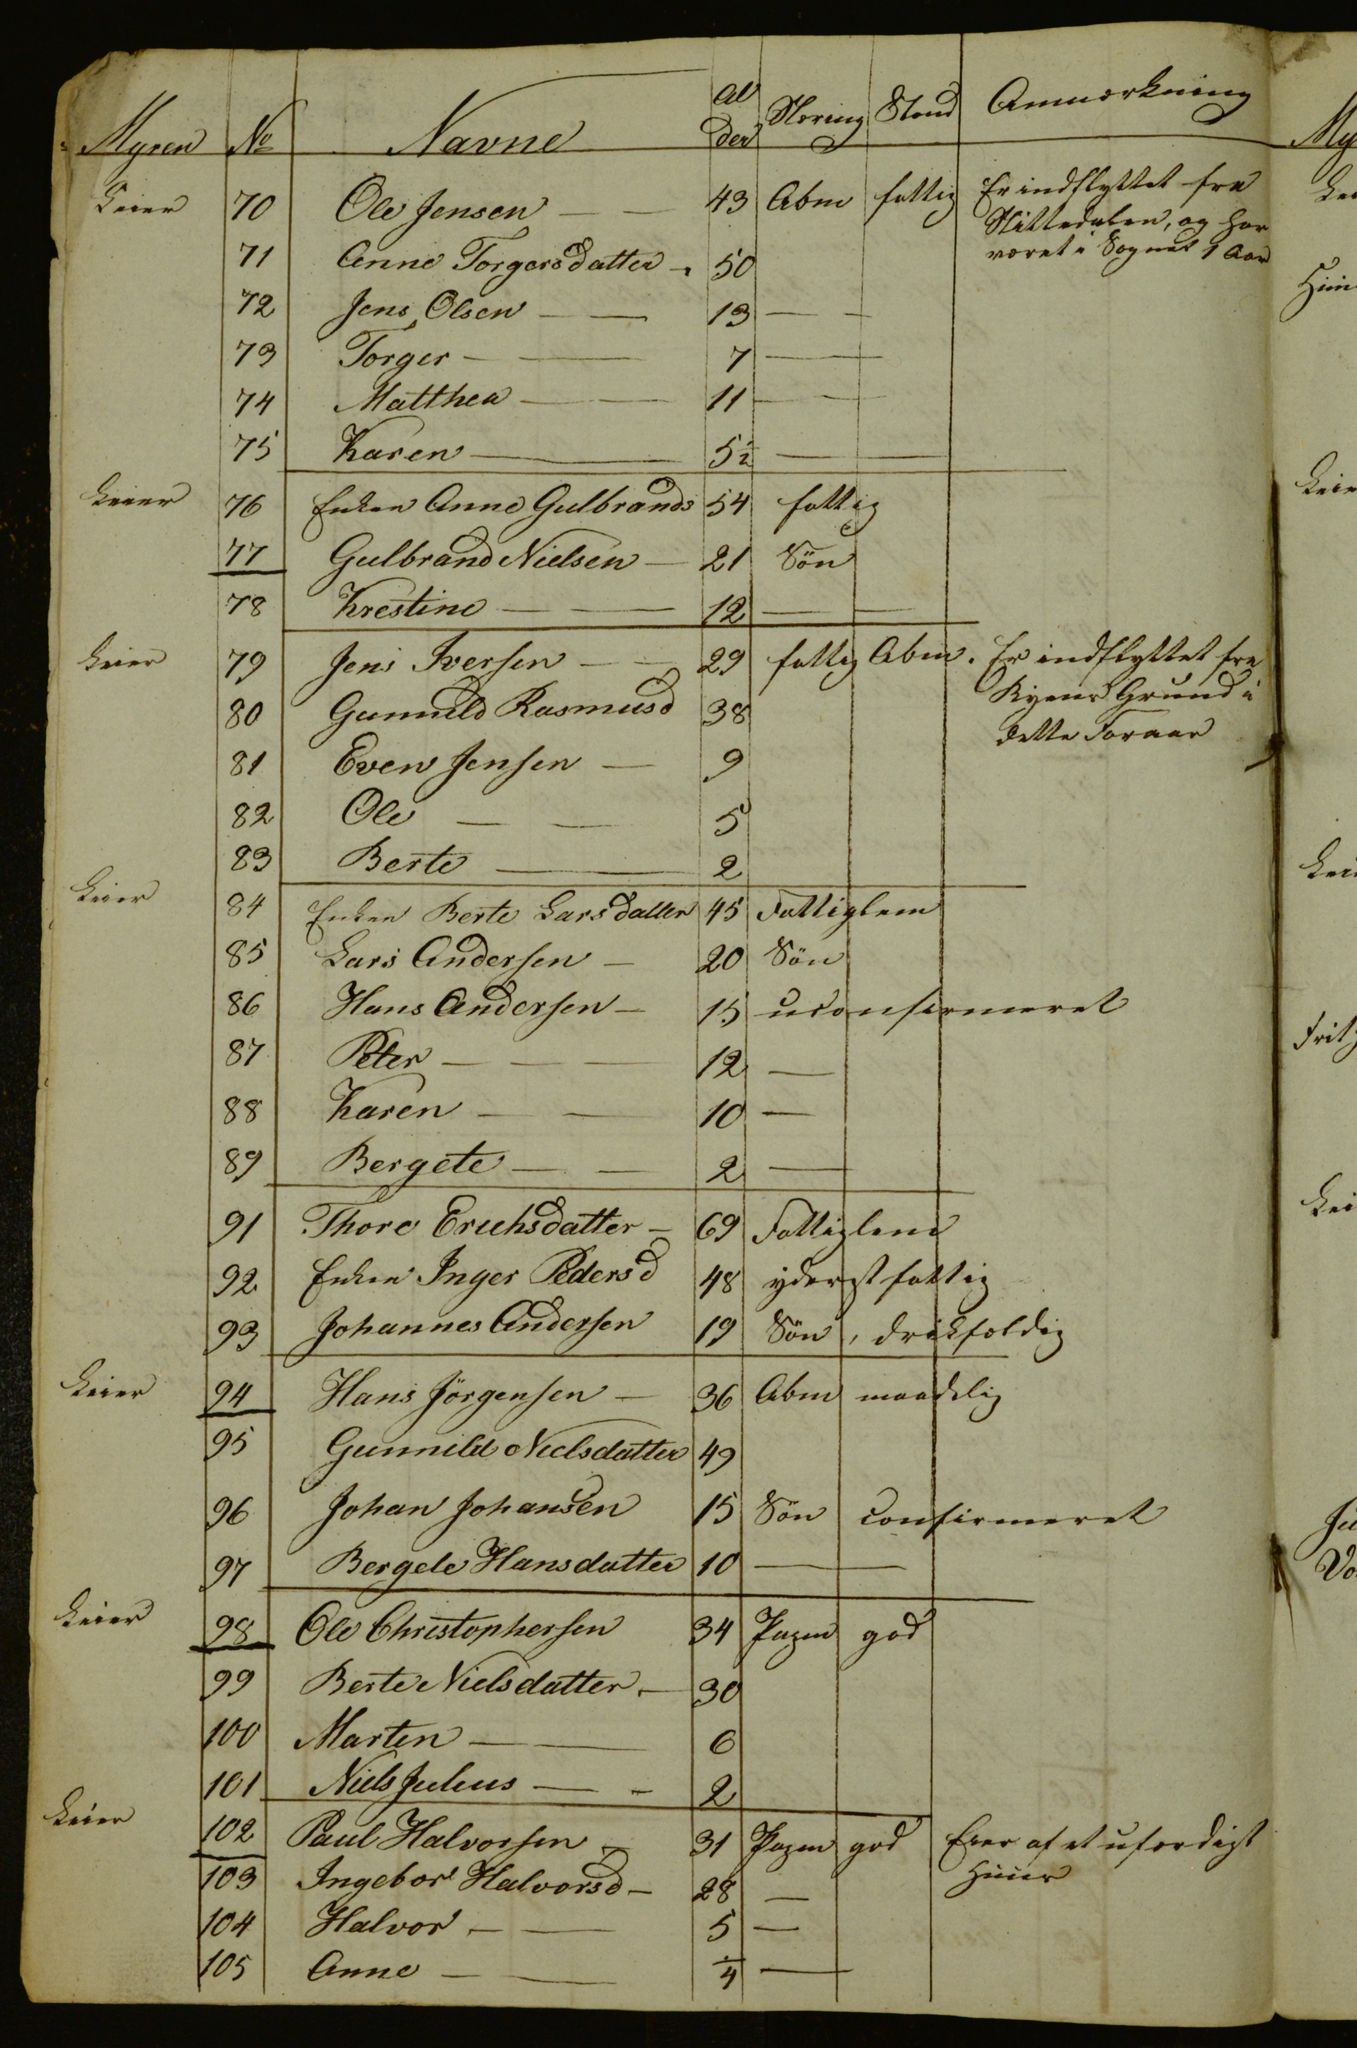 Myren No Navne Al der Næring Stand Anmærkning
Leier 70 Ole Jensen — — 43 Abm fattig Er indflyttet fra
Nittedalen, og har
været i Sognet 1 Aar
71 Anne Torgersdatter - 50
72 Jens Olsen — — 13 — —
73 Torger — — 7 — —
74 Matthea — — 11 — —
75 Karen — — 5½ — —
Leier 76 Enken Anne Gulbrands 54 fattig
77 Gulbrand Nielsen — 21 Sön
78 Krestine — — 12 — —
Leier 79 Jens Iversen — — 29 fattig Abm. Er indflyttet fra
Ryens Grund i
dette Foraar
80 Gunnild Rasmusd 38
81 Even Jensen — 9
82 Ole — — 5
83 Berte — 2
Leier 84 Enken Berte Larsdatter 45 Fattiglem
85 Lars Andersen — 20 Sön
86 Hans Andersen — 15 uconfirmeret
87 Peter — — — 12 —
88 Karen — — 10 —
89 Bergete — — 2 —
91 Thore Erichsdatter — 69 Fattiglem
92 Enken Inger Pedersd 48 yderst fattig
93 Johannes Andersen 19 Sön, drikfældig
Leier 94 Hans Jörgensen — 36 Abm maadelig
95 Gunnild Nielsdatter 49
96 Johan Johansen 15 Sön confirmeret
97 Bergete Hansdatter 10 —
Leier 98 Ole Christophersen 34 god
99 Berte Nielsdatter — 30
100 Marten — — 6
101 Niels Julius — - 2
Leier 102 Paul Halvorsen — 31 god Eier af et ufærdigt
Huus
103 Ingebor Halvorsd — 28 —
104 Halvor — — 5 —
105 Anne — — ¼ —